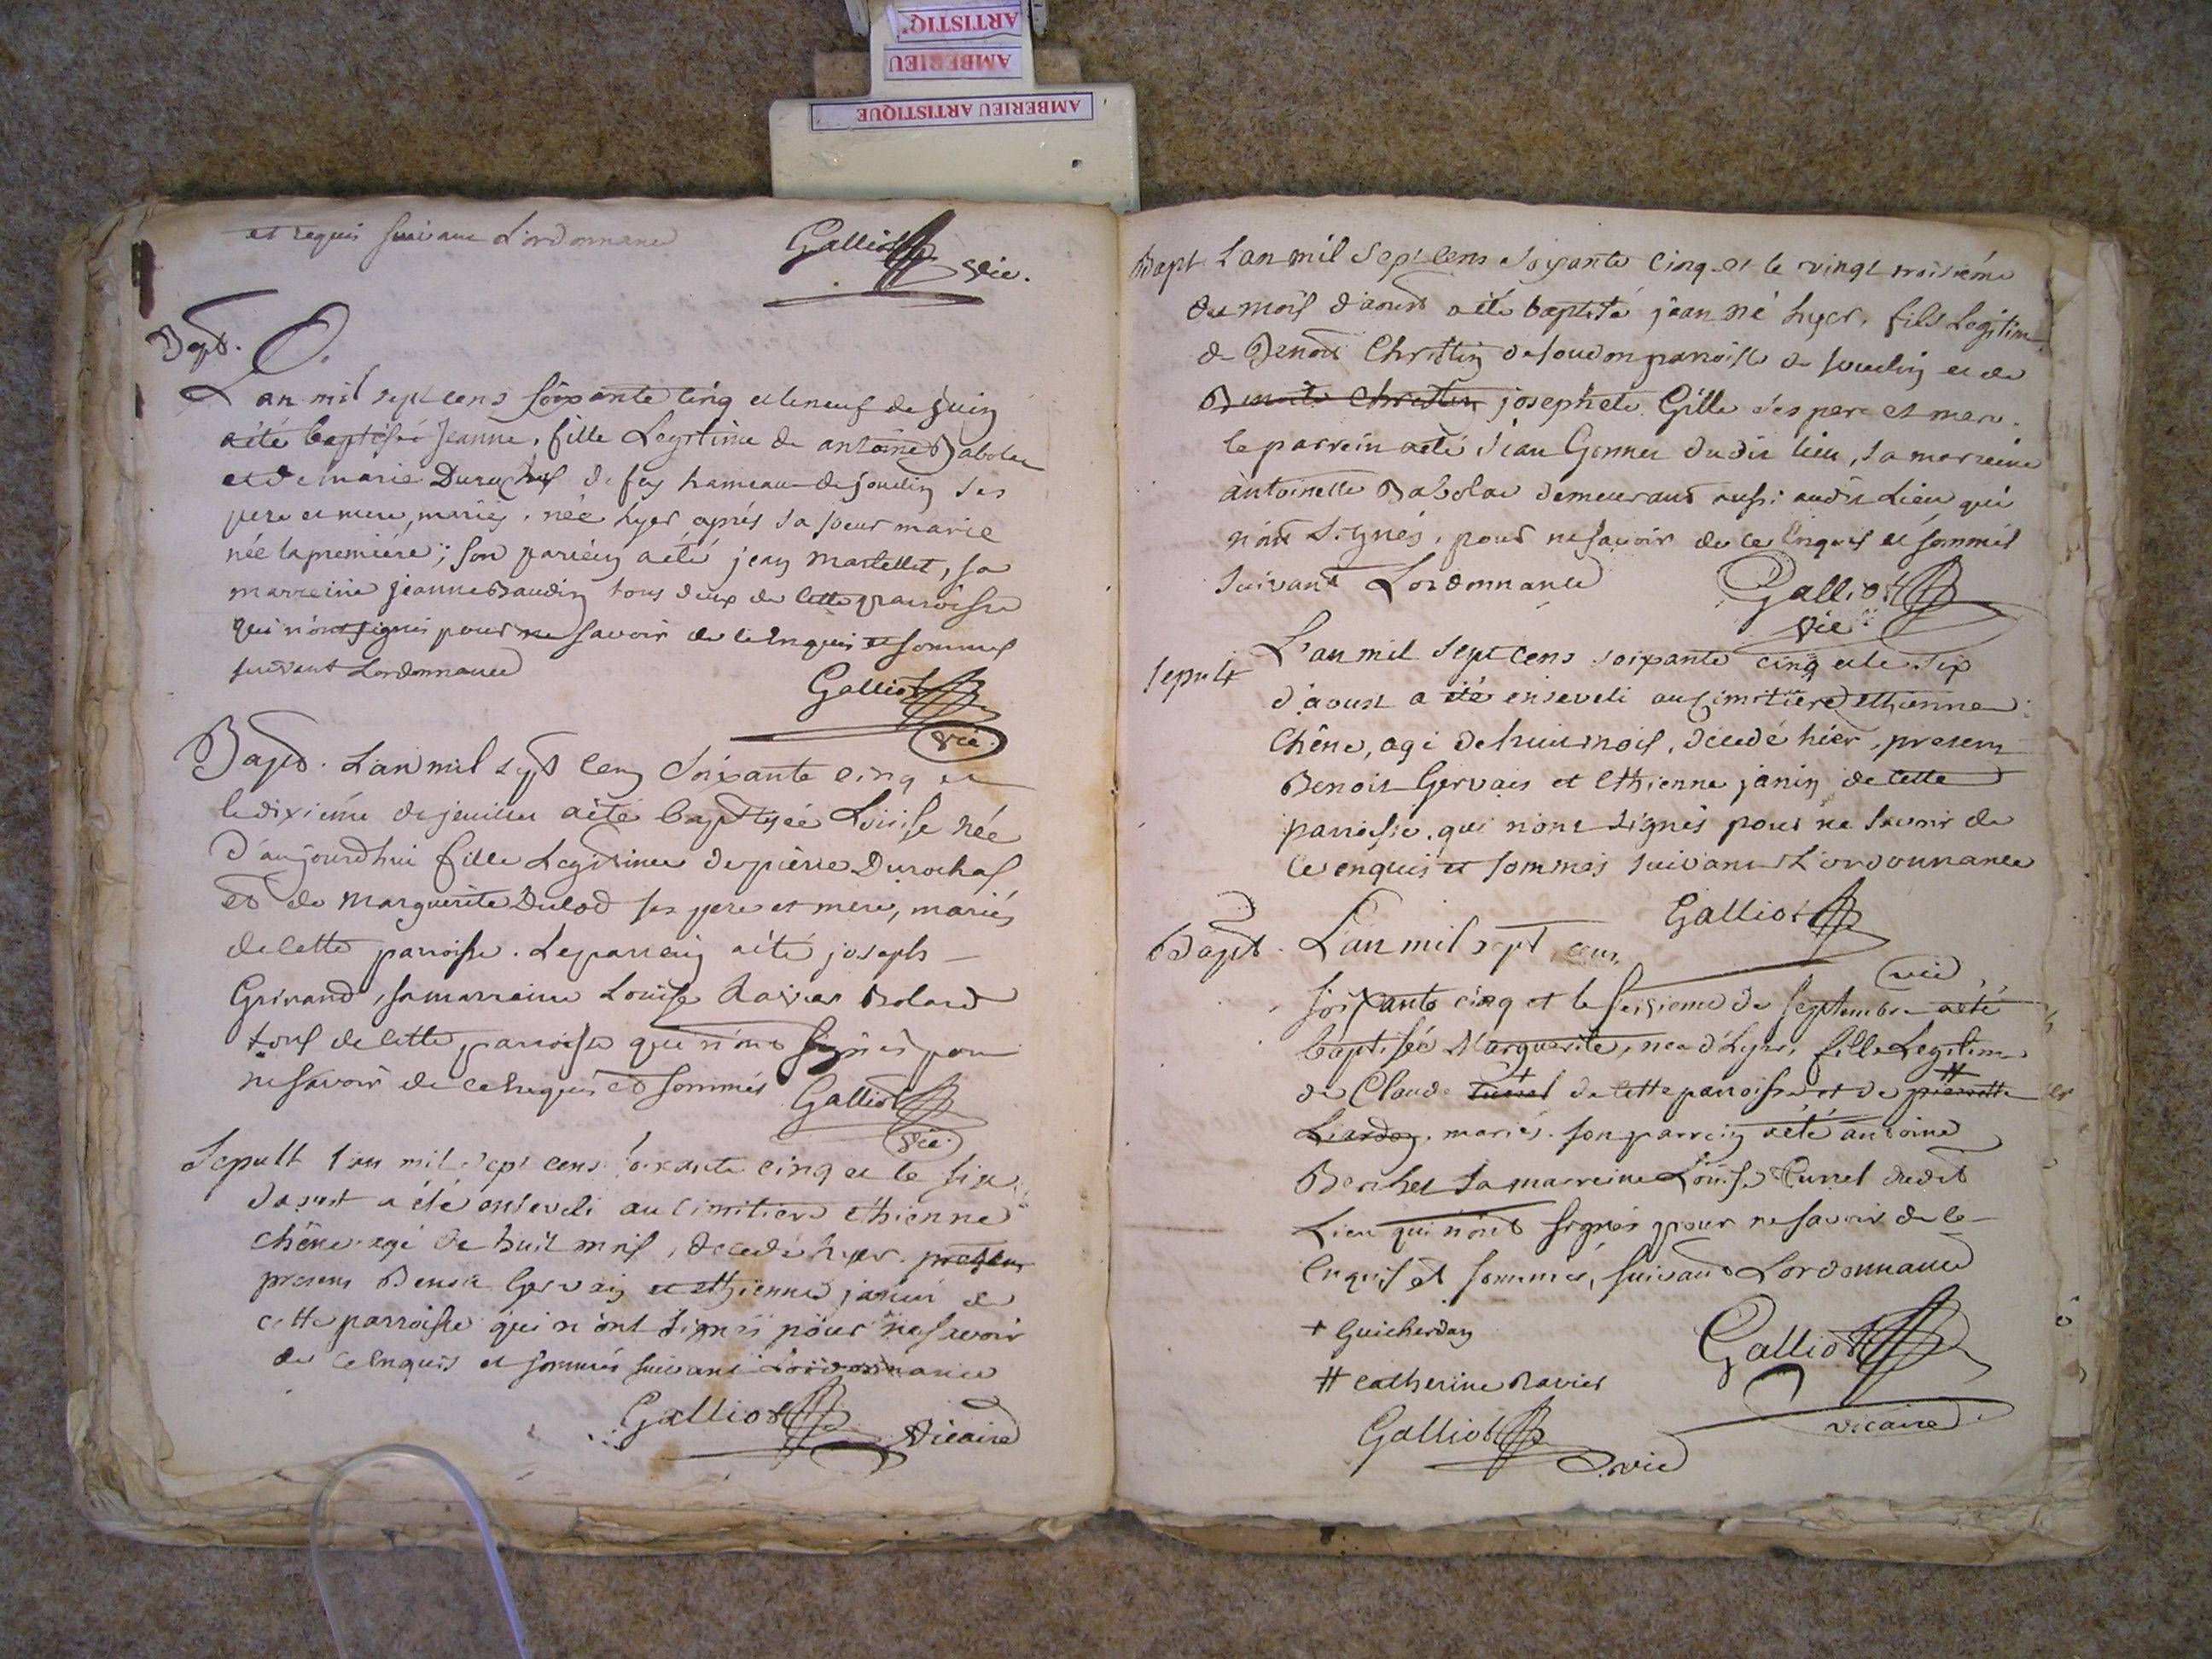 ARTISTIQ
AMBERIEU
AMBERIEU ARTISTIQUE
et requis suivant L'ordonnance
Galliot
vic.
Bapt.
L'an mil sept cens soixante cinq et le neuf de juin
a été baptisée Jeanne, fille Legitime de antoine Babolat
et de marie Durochas de fay hameau de joudin ses
pere et mere, mariés, née hyer aprés sa soeur marie
née la premiére; son parrein a été jean martellet, sa
marreine jeanne Baudin tous deux de cette parroisse
qui n'ont signés pour ne savoir de ce enquis et sommes
suivant Lordonnance
Galliot
vic.
Bapt. L'an mil sept cens soixante cinq et
le dixiéme de jeuillet a été baptisée Louise née
d'aujourdhui fille Legitime de pierre Durochas
et de marguerite Dulod ses pere et mere, mariés
de cette parroisse. Le parrein a été joseph
Grivand, sa marraine Louise Ravier Bolard
tous de cette parroisse qui n'ont signés pour
ne savoir de ce enquis et sommés
Galliot
vic.
Sepult l'an mil sept cens soixante cinq et le six
daoust a été enseveli au cimitiere ethienne
chêne agé de huit mois, decedé hyer. presens
presens Benoit Gervais et ethienne janin de
cette parroisse qui n'ont signés pour ne savoir
de ce enquis et sommés suivant Lordonnance
Galliot
vicaire
Bapt. L'an mil sept cens soixante cinq et le vingt troisiéme
du mois d'aoust a été baptisé jean né hyer, fils Legitime
de Benoit Christin de joudon parroisse de joudin et de
Benoite Christin josephete Gille ses pere et mere.
le parrein a été jean Gonnet dudit lieu, sa marreine
antoinette Babolat demeurant aussi audit Lieu qui
n'ont signés, pour ne savoir de ce enquis et sommés
suivant Lordonnance
Galliot
vic.
Sepult
L'an mil sept cens soixante cinq et le six
d'aoust a été enseveli au cimitiere ethienne
Chêne, agé de huit mois, decedé hier, presens
Benoit Gervais et ethienne janin de cette
parroisse, qui n'ont signés pour ne savoir de
ce enquis et sommés suivant L'ordonnance
Galliot
vic
Bapt. L'an mil sept cens
soixante cinq et le seizieme de septembre a été
baptisée Marguerite, née d'hyer, fille Legitime
de Claude Curret + de cette parroisse et de pierrette #
Liardon, mariés. son parrein a été antoine
Berchet sa marreine Louise Curret dudit
Lieu qui n'ont signés pour ne savoir de ce
enquis et sommés, suivant Lordonnance
+ Guicherdan
Galliot
# catherine Ravier
vicaire
Galliot
vic